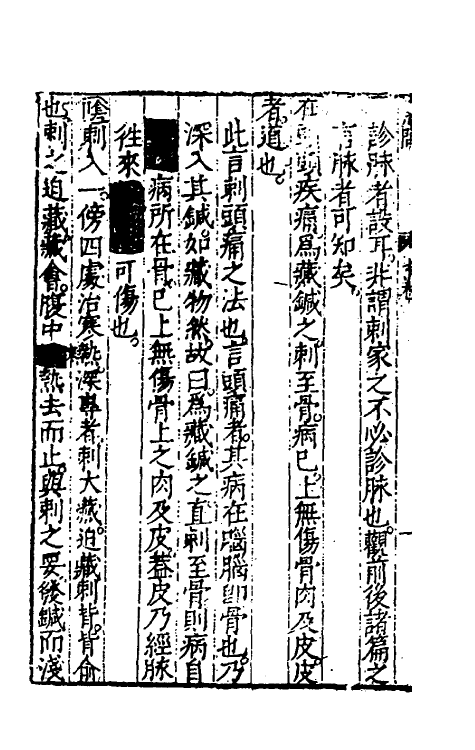 診脉者設耳非謂刺家之不必診脉也觀前後諸篇之
言脉者可知矣
在頭頭疾痛爲藏鍼之刺至骨病已上無傷骨肉及皮皮
者道也
此言刺頭痛之法也言頭痛者其病在腦腦即骨也乃
深入其鍼如藏物然故曰爲藏鍼之直刺至骨則病自
病所在骨已上無傷骨上之肉及皮葢皮乃經脉
徃來可傷也
隂刺入一傍四處治寒熱深專者刺大藏迫藏刺背背俞
也刺之迫藏藏會腹中熱去而止與刺之要鍼而淺